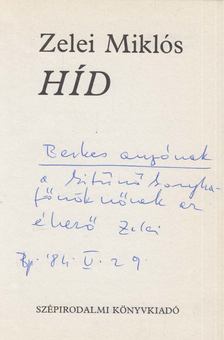 Zelei Miklós
HÍD
Berkes anyónak
a kitűnő konyha-
főnöknőnek az
éhező Zelei
Bp. '84. V. 29.
SZÉPIRODALMI KÖNYVKIADÓ